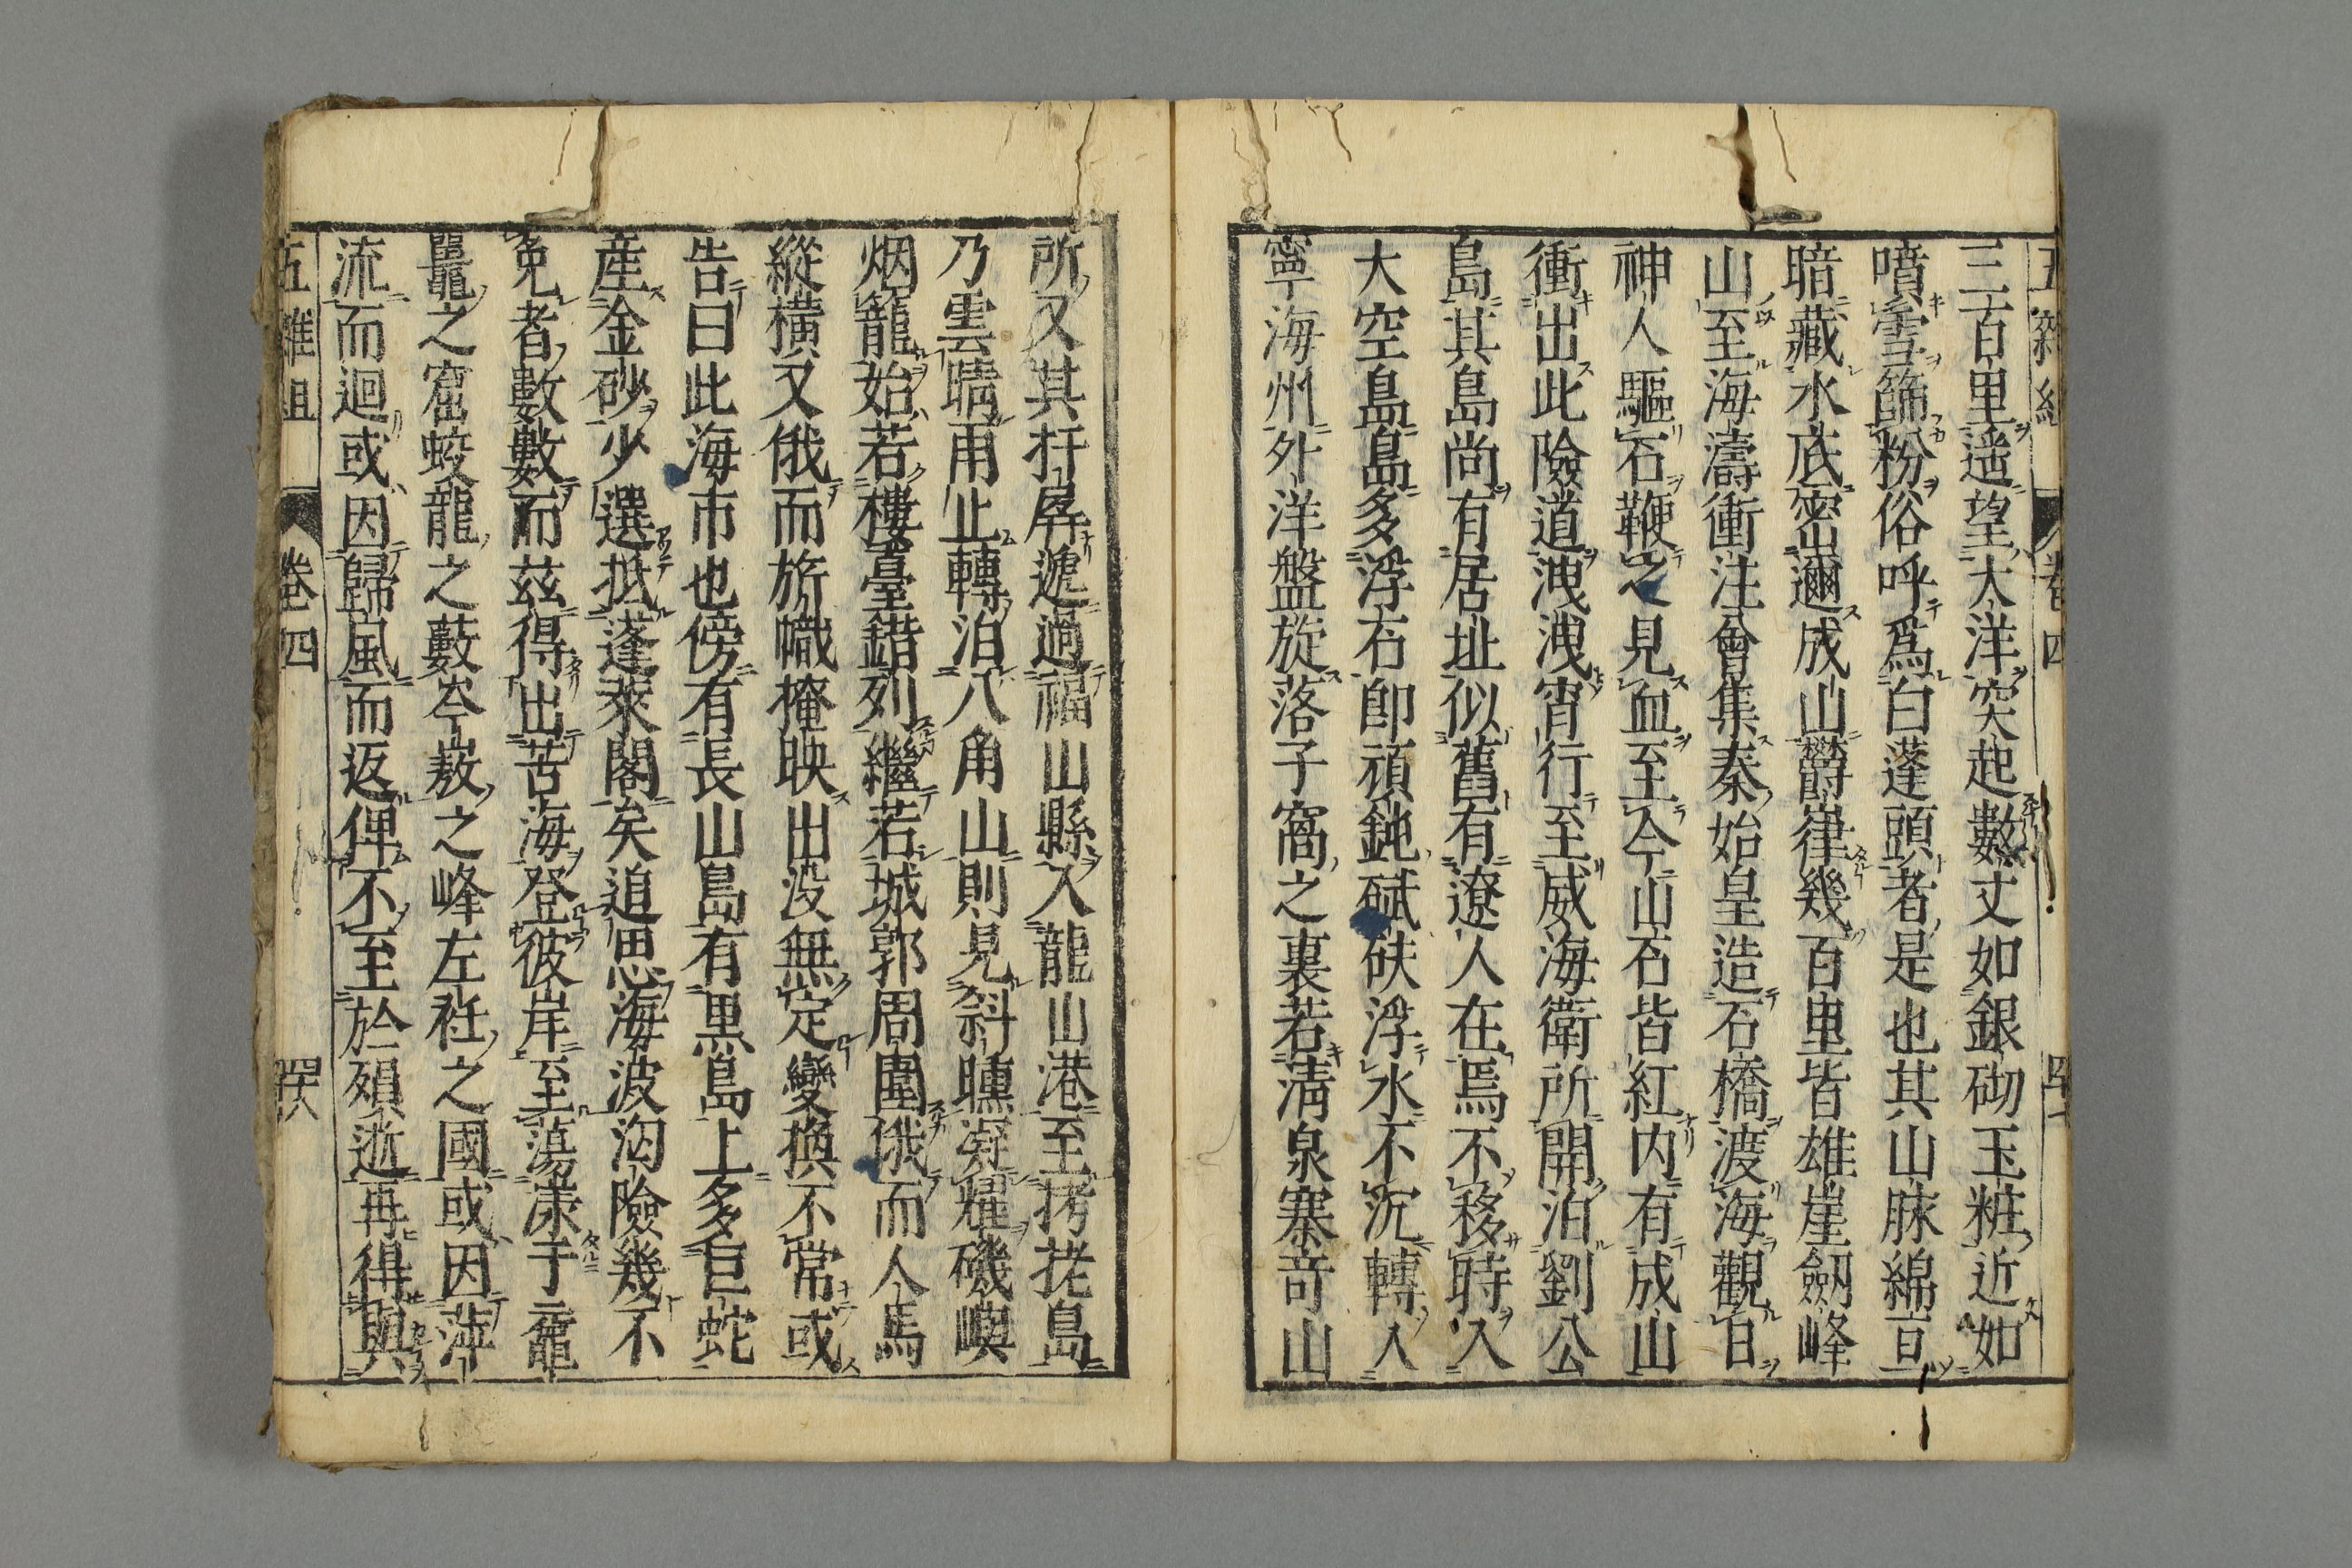 五雜組 卷四
三百里遥望大洋突起數丈如銀砌玉粧近如
噴雪篩粉俗呼爲白蓬頭者是也其山脉綿亘
暗藏水底密邇成山欝嵂幾百里皆雄崖劒峰
山至海濤衝注會集秦始皇造石橋渡海觀日
神人驅石鞭之見血至今山石皆紅内有成山
衝出此險道洩洩宵行至威海衛所開泊劉公
島其島尚有居址似舊有遼人在焉不移時入
大空島島多浮石即頑鈍碔砆浮水不沉轉入
寧海州外洋盤旋落子窩之裏若淸泉寨竒山
所又其扞屏遞過福山縣入龍山港至栲栳島
乃雲晴雨止轉泊八角山則見斜曛凝耀磯嶼
烟籠始若樓臺錯列繼若城郭周圍俄而人馬
縱横又俄而旂幟掩映出没無定變換不常或
告曰此海市也傍有長山島有黒島上多巨蛇
産金砂少選抵蓬萊閣矣追思海波沟險幾不
免者數數而茲得出苦海登彼岸至蕩漾于黿
鼉之窟蛟龍之藪岑嶅之峰左袵之國或因萍
流而迴或因歸風而返俾不至於殞逝再得與
五雜組 卷四